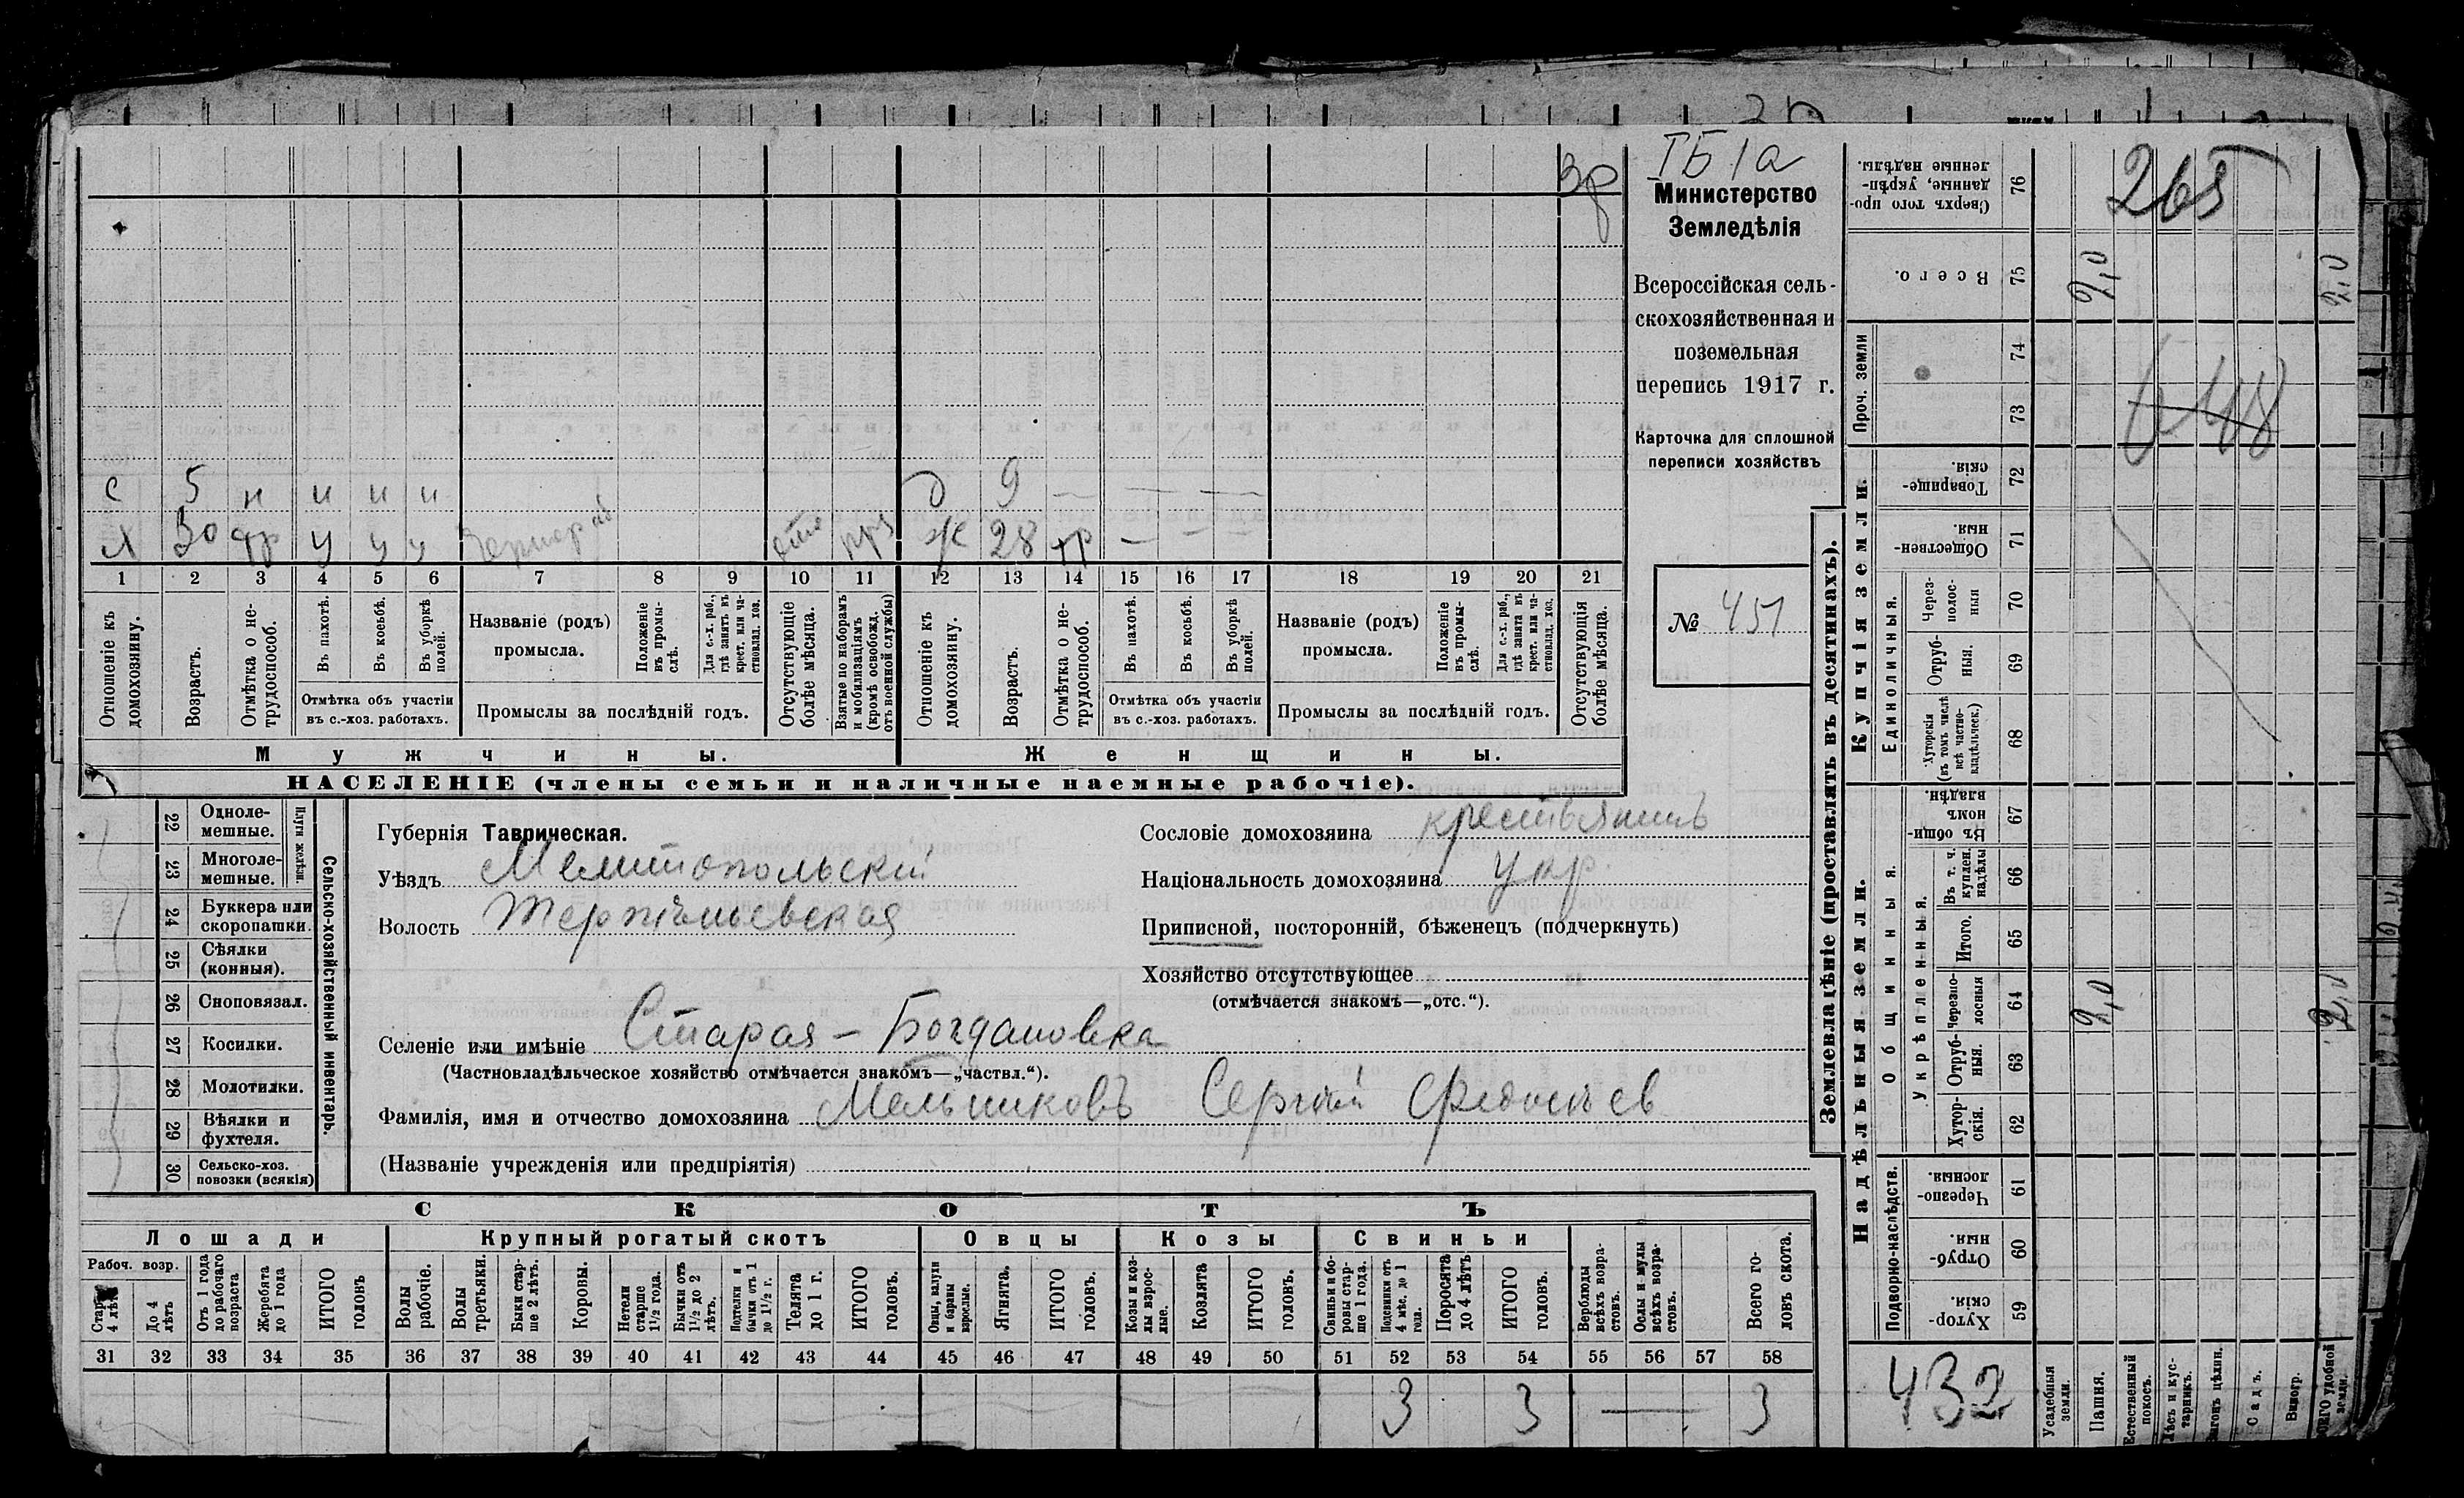 ІБ 1а
Министерство
Земледѣлія
Всероссійская сель-
скохозяйственная и
поземельная
перепись 1917 г.
Карточка для сплошной
переписи хозяйствъ
№ 451
Зр
с 5 н н н н д 9 — — —
х 30 тр у у у ж 28 тр — — —
1 2 3 4 5 6 7 8 9 10 11 12 13 14 15 16 17 18 19 20 21
Отношеніе къ домохозяину.
Возрастъ.
Отмѣтка о не-трудоспособ.
Въ пахотѣ.
Въ косьбѣ.
Въ уборкѣ полей.
Отмѣтка объ участіи
въ с.-хоз. работахъ.
Названіе (родъ)
промысла.
Положеніе въ промы-слѣ.
Для с.-х. раб., гдѣ занятъ въ крест. или ча-стновлад. хоз.
Промыслы за послѣдній годъ.
Отсутствующіе болѣе мѣсяца.
Взятые по наборамъ и мобилизаціямъ (кромѣ освобожд. отъ военной службы)
Отношеніе къ домохозяину.
Возрастъ.
Отмѣтка о не-трудоспособ.
Въ пахотѣ.
Въ косьбѣ.
Въ уборкѣ полей.
Отмѣтка объ участіи
въ с.-хоз. работахъ.
Названіе (родъ)
промысла.
Положеніе въ промы-слѣ.
Для с.-х. раб., гдѣ занята въ крест. или ча-стновлад. хоз.
Промыслы за послѣдній годъ.
Отсутствующія болѣе мѣсяца.
Мужчины. Женщины.
НАСЕЛЕНІЕ (члены семьи и наличные наемные рабочіе).
22 Одноле-мешные.
23 Многоле-мешные.
Плуги желѣзн.
24 Буккера или скоропашки.
25 Сѣялки (конныя).
26 Сноповязал.
27 Косилки.
28 Молотилки.
29 Вѣялки и фухтеля.
30 Сельско-хоз. повозки (всякія)
Сельско-хозяйственный инвентарь.
Губернія Таврическая.
Уѣздъ Мелитопольскій
Волость Терпѣньевская
Сословіе домохозяина крестьянинъ
Національность домохозяина укр.
Приписной, посторонній, бѣженецъ (подчеркнуть)
Хозяйство отсутствующее
(отмѣчается знакомъ—„отс.“).
Селеніе или имѣніе Старая – Богдановка
(Частновладѣльческое хозяйство отмѣчается знакомъ—„частвл.“).
Фамилія, имя и отчество домохозяина Мельниковъ Сергѣй Федосѣев
(Названіе учрежденія или предпріятія)
СКОТЪ
Лошади Крупный рогатый скотъ Овцы Козы Свиньи
Рабоч. возр.
Старше 4 лѣтъ
До 4 лѣтъ
Отъ 1 года до рабочаго возраста
Жеребята до 1 года
ИТОГО головъ
Волы рабочіе.
Волы третьяки.
Быки стар-ше 2 лѣтъ.
Коровы.
Нетели старше 1½ года.
Бычки отъ 1½ до 2 лѣтъ.
Подтелки и бычки отъ 1 до 1½ г.
Телята до 1 г.
ИТОГО головъ.
Овцы, валухи и бараны взрослые.
Ягнята.
ИТОГО головъ.
Козы и коз-лы взрос-лые.
Козлята
ИТОГО головъ.
Свиньи и бо-ровы стар-ше 1 года.
Подсвинки отъ 4 мѣс. до 1 года.
Поросята до 4 лѣтъ
ИТОГО головъ.
Верблюды всѣхъ возра-стовъ.
Ослы и мулы всѣхъ возра-стовъ.
Всего го-ловъ скота.
31 32 33 34 35 36 37 38 39 40 41 42 43 44 45 46 47 48 49 50 51 52 53 54 55 56 57 58
3 3 — 3
Землевладѣніе (проставлять въ десятинахъ).
Купчія земли.
Надѣльныя земли.
Проч. земли
Единоличныя.
Общинныя.
Укрѣпленныя.
Подворно-наслѣдств.
76 Сверхъ того про-данные, укрѣп-ленные надѣлы.
75 Всего. 2,0 2,0
74
73
72 Товарище-скія.
71 Обществен-ныя.
70 Через-полос-ныя
69 Отруб-ныя.
68 Хуторскія (въ томъ числѣ всѣ частно-владѣльческ.)
67 Въ общи-номъ владѣн.
66 Въ т. ч. куплен. надѣлы
65 Итого.
64 Черезпо-лосныя 2,0 2,0
63 Отруб-ныя.
62 Хутор-скія.
61 Черезпо-лосныя.
60 Отруб-ныя.
59 Хутор-скія.
265
648
432
Усадебныя земли.
Пашня.
Естественный покосъ.
Лѣсъ и кус-тарникъ.
Выгонъ цѣлин.
Садъ.
Виногр.
Всего удобной земли.